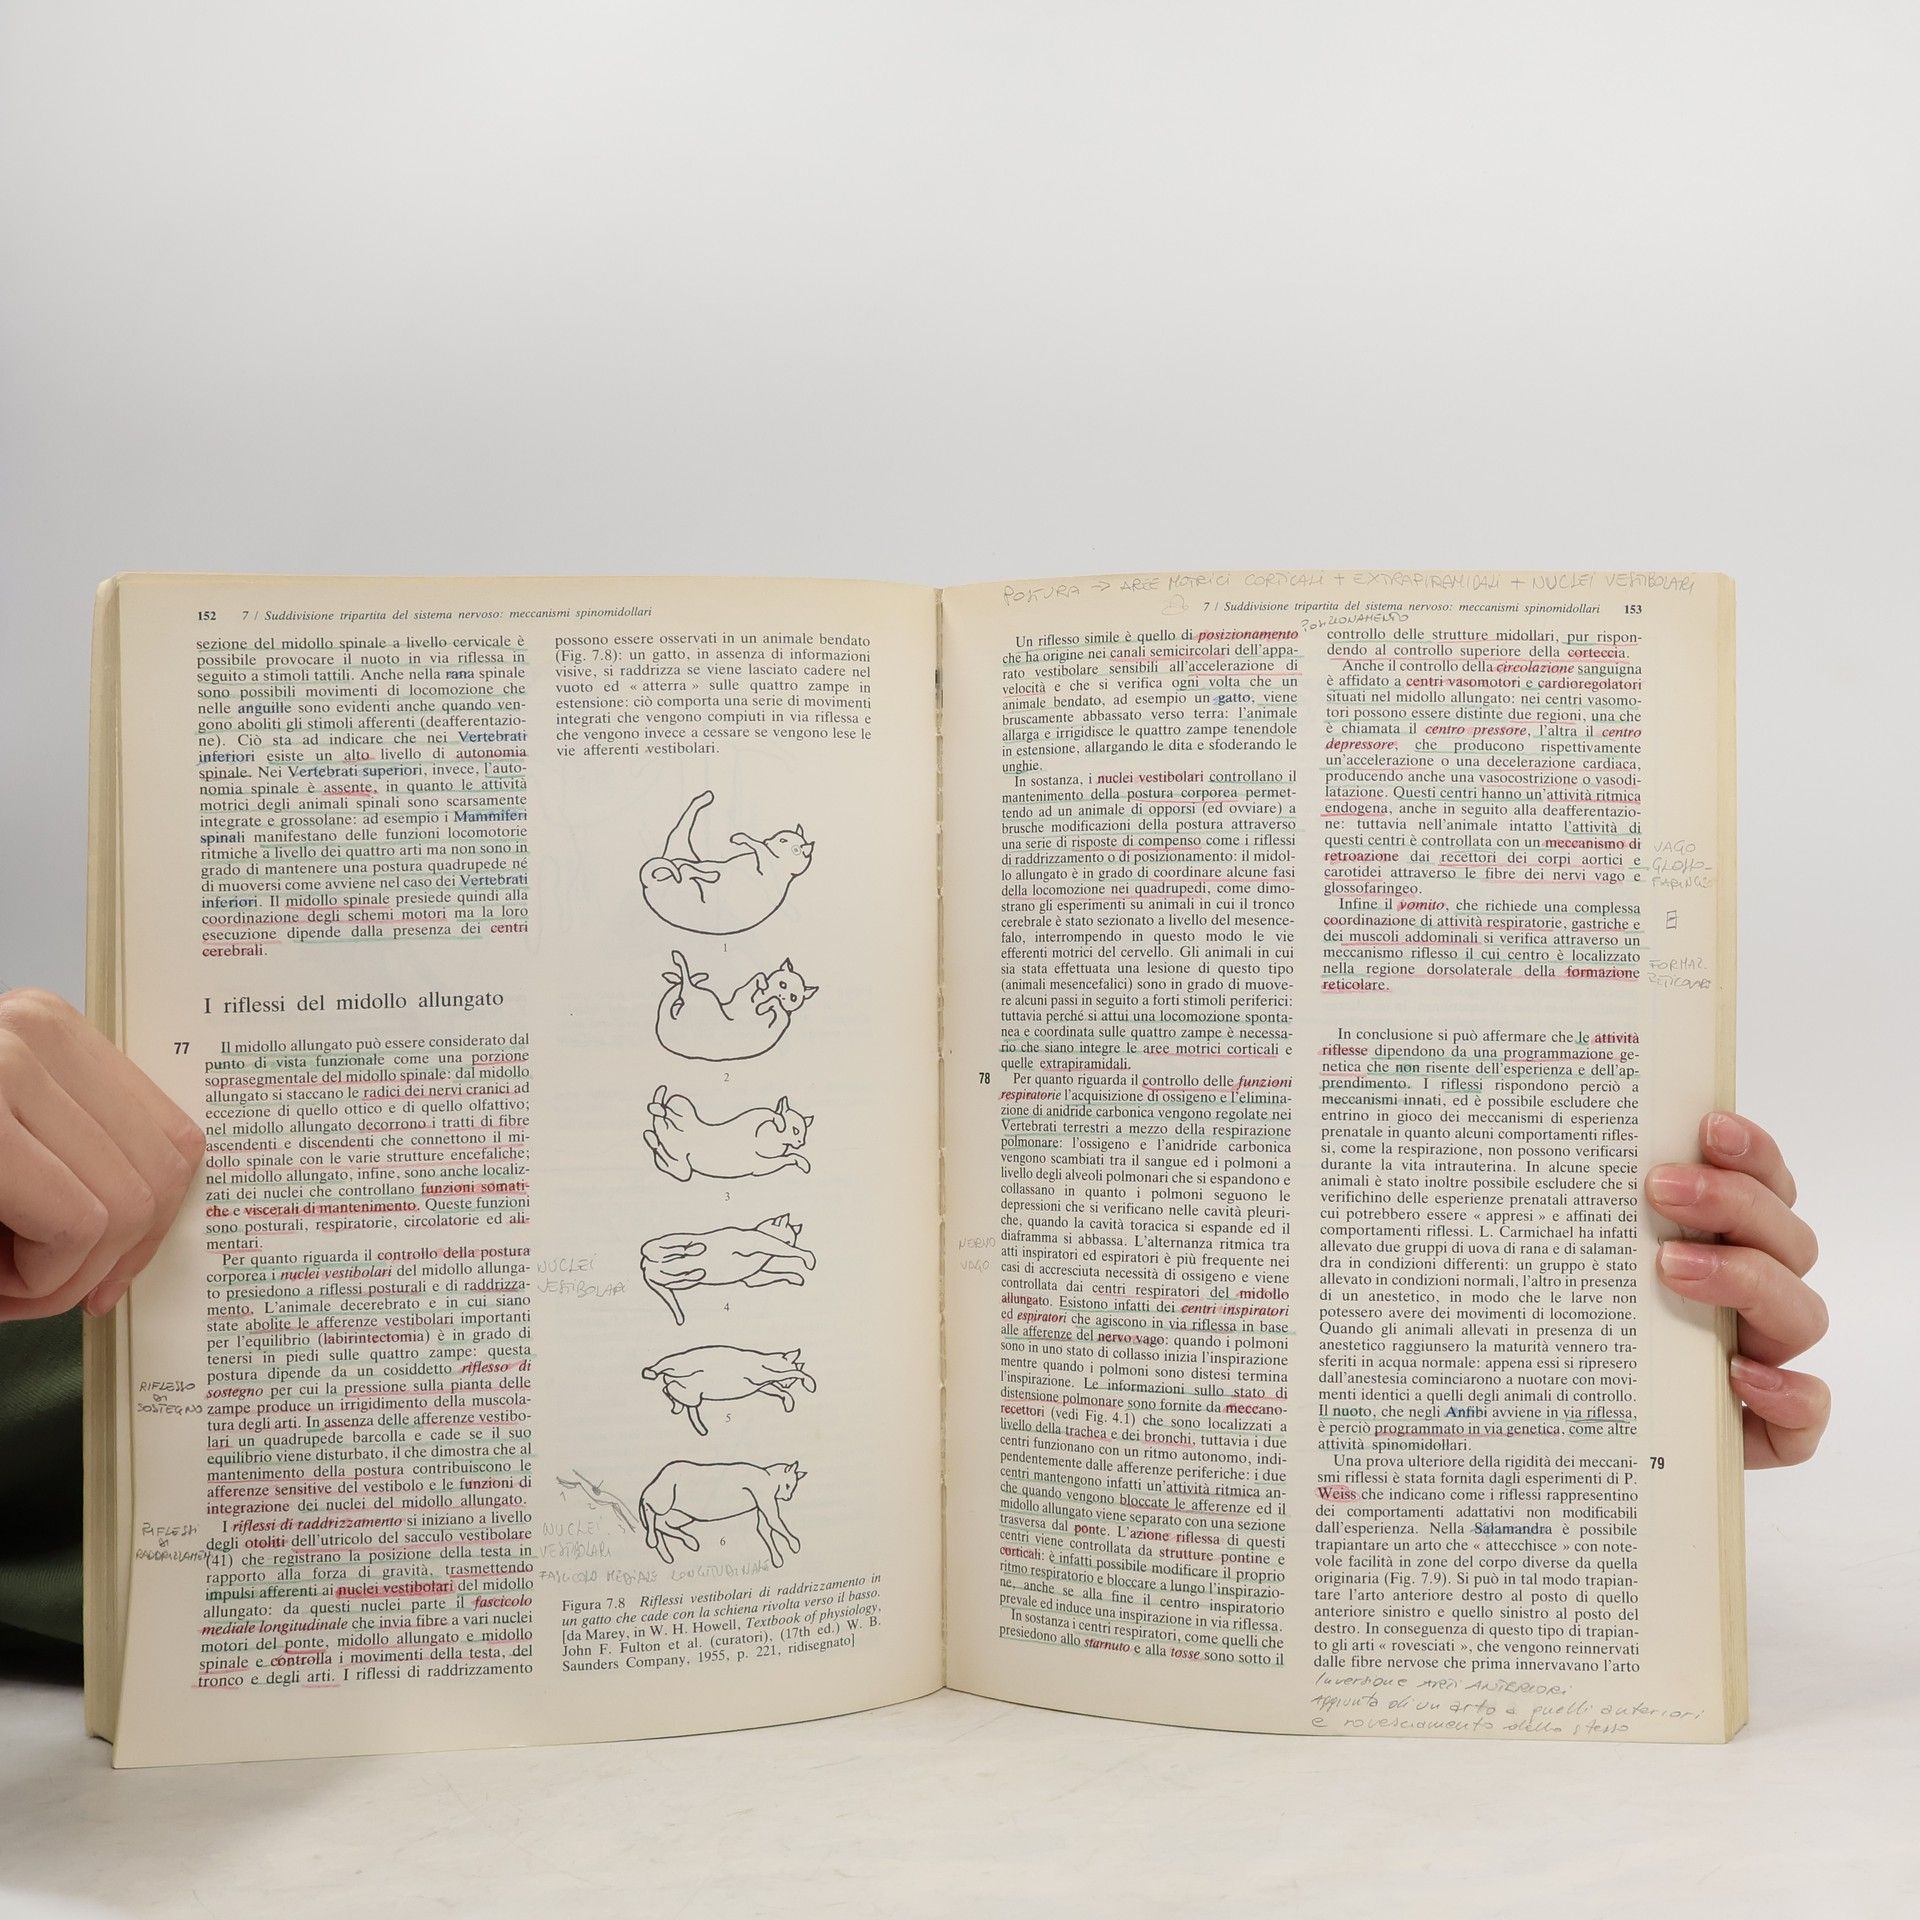 152 7 / Suddivisione tripartita del sistema nervoso: meccanismi spinomidollari
sezione del midollo spinale a livello cervicale è
possibile provocare il nuoto in via riflessa in
seguito a stimoli tattili. Anche nella rana spinale
sono possibili movimenti di locomozione che
nelle anguille sono evidenti anche quando ven-
gono aboliti gli stimoli afferenti (deafferentazio-
ne). Ciò sta ad indicare che nei Vertebrati
inferiori esiste un alto livello di autonomia
spinale. Nei Vertebrati superiori, invece, l'auto-
nomia spinale è assente, in quanto le attività
motrici degli animali spinali sono scarsamente
integrate e grossolane: ad esempio i Mammiferi
spinali manifestano delle funzioni locomotorie
ritmiche a livello dei quattro arti ma non sono in
grado di mantenere una postura quadrupede né
di muoversi come avviene nel caso dei Vertebrati
inferiori. Il midollo spinale presiede quindi alla
coordinazione degli schemi motori ma la loro
esecuzione dipende dalla presenza dei centri
cerebrali.
I riflessi del midollo allungato
77 Il midollo allungato può essere considerato dal
punto di vista funzionale come una porzione
soprasegmentale del midollo spinale: dal midollo
allungato si staccano le radici dei nervi cranici ad
eccezione di quello ottico e di quello olfattivo;
nel midollo allungato decorrono i tratti di fibre
ascendenti e discendenti che connettono il mi-
dollo spinale con le varie strutture encefaliche;
nel midollo allungato, infine, sono anche localiz-
zati dei nuclei che controllano funzioni somati-
che e viscerali di mantenimento. Queste funzioni
sono posturali, respiratorie, circolatorie ed ali-
mentari.
Per quanto riguarda il controllo della postura
corporea i nuclei vestibolari del midollo allunga-
to presiedono a riflessi posturali e di raddrizza-
mento. L'animale decerebrato e in cui siano
state abolite le afferenze vestibolari importanti
per l'equilibrio (labirintectomia) è in grado di
tenersi in piedi sulle quattro zampe: questa
postura dipende da un cosiddetto riflesso di
sostegno per cui la pressione sulla pianta delle
zampe produce un irrigidimento della muscola-
tura degli arti. In assenza delle afferenze vestibo-
lari un quadrupede barcolla e cade se il suo
equilibrio viene disturbato, il che dimostra che al
mantenimento della postura contribuiscono le
afferenze sensitive del vestibolo e le funzioni di
integrazione dei nuclei del midollo allungato.
I riflessi di raddrizzamento si iniziano a livello
degli otoliti dell'utricolo del sacculo vestibolare
(41) che registrano la posizione della testa in
rapporto alla forza di gravità, trasmettendo
impulsi afferenti ai nuclei vestibolari del midollo
allungato: da questi nuclei parte il fascicolo
mediale longitudinale che invia fibre a vari nuclei
motori del ponte, midollo allungato e midollo
spinale e controlla i movimenti della testa, del
tronco e degli arti. I riflessi di raddrizzamento
RIFLESSO
DI
SOSTEGNO
RIFLESSI
DI
RADDRIZZAMEN
possono essere osservati in un animale bendato
(Fig. 7.8): un gatto, in assenza di informazioni
visive, si raddrizza se viene lasciato cadere nel
vuoto ed « atterra » sulle quattro zampe in
estensione: ciò comporta una serie di movimenti
integrati che vengono compiuti in via riflessa e
che vengono invece a cessare se vengono lese le
vie afferenti vestibolari.
1
2
3
NUCLEI
VESTIBOLARI
4
5
6
NUCLEI
VESTIBOLARI
FASCICOLO MEDIALE LONGITUDINALE
Figura 7.8 Riflessi vestibolari di raddrizzamento in
un gatto che cade con la schiena rivolta verso il basso.
[da Marey, in W. H. Howell, Textbook of physiology,
John F. Fulton et al. (curatori), (17th ed.) W. B.
Saunders Company, 1955, p. 221, ridisegnato]
POSTURA → AREE MOTRICI CORTICALI + EXTRAPIRAMIDALI + NUCLEI VESTIBOLARI
7 / Suddivisione tripartita del sistema nervoso: meccanismi spinomidollari 153
POSIZIONAMENTO
Un riflesso simile è quello di posizionamento
che ha origine nei canali semicircolari dell'appa-
rato vestibolare sensibili all'accelerazione di
velocità e che si verifica ogni volta che un
animale bendato, ad esempio un gatto, viene
bruscamente abbassato verso terra: l'animale
allarga e irrigidisce le quattro zampe tenendole
in estensione, allargando le dita e sfoderando le
unghie.
In sostanza, i nuclei vestibolari controllano il
mantenimento della postura corporea permet-
tendo ad un animale di opporsi (ed ovviare) a
brusche modificazioni della postura attraverso
una serie di risposte di compenso come i riflessi
di raddrizzamento o di posizionamento: il midol-
lo allungato è in grado di coordinare alcune fasi
della locomozione nei quadrupedi, come dimo-
strano gli esperimenti su animali in cui il tronco
cerebrale è stato sezionato a livello del mesence-
falo, interrompendo in questo modo le vie
efferenti motrici del cervello. Gli animali in cui
sia stata effettuata una lesione di questo tipo
(animali mesencefalici) sono in grado di muove-
re alcuni passi in seguito a forti stimoli periferici:
tuttavia perché si attui una locomozione sponta-
nea e coordinata sulle quattro zampe è necessa-
rio che siano integre le aree motrici corticali e
quelle extrapiramidali.
78 Per quanto riguarda il controllo delle funzioni
respiratorie l'acquisizione di ossigeno e l'elimina-
zione di anidride carbonica vengono regolate nei
Vertebrati terrestri a mezzo della respirazione
polmonare: l'ossigeno e l'anidride carbonica
vengono scambiati tra il sangue ed i polmoni a
livello degli alveoli polmonari che si espandono e
collassano in quanto i polmoni seguono le
depressioni che si verificano nelle cavità pleuri-
che, quando la cavità toracica si espande ed il
diaframma si abbassa. L'alternanza ritmica tra
atti inspiratori ed espiratori è più frequente nei
casi di accresciuta necessità di ossigeno e viene
controllata dai centri respiratori del midollo
allungato. Esistono infatti dei centri inspiratori
ed espiratori che agiscono in via riflessa in base
alle afferenze del nervo vago: quando i polmoni
sono in uno stato di collasso inizia l'inspirazione
mentre quando i polmoni sono distesi termina
l'inspirazione. Le informazioni sullo stato di
distensione polmonare sono fornite da meccano-
recettori (vedi Fig. 4.1) che sono localizzati a
livello della trachea e dei bronchi, tuttavia i due
centri funzionano con un ritmo autonomo, indi-
pendentemente dalle afferenze periferiche: i due
centri mantengono infatti un'attività ritmica an-
che quando vengono bloccate le afferenze ed il
midollo allungato viene separato con una sezione
trasversa dal ponte. L'azione riflessa di questi
centri viene controllata da strutture pontine e
corticali: è infatti possibile modificare il proprio
ritmo respiratorio e bloccare a lungo l'inspirazio-
ne, anche se alla fine il centro inspiratorio
prevale ed induce una inspirazione in via riflessa.
In sostanza i centri respiratori, come quelli che
presiedono allo starnuto e alla tosse sono sotto il
NERVO
VAGO
controllo delle strutture midollari, pur rispon-
dendo al controllo superiore della corteccia.
Anche il controllo della circolazione sanguigna
è affidato a centri vasomotori e cardioregolatori
situati nel midollo allungato: nei centri vasomo-
tori possono essere distinte due regioni, una che
è chiamata il centro pressore, l'altra il centro
depressore, che producono rispettivamente
un'accelerazione o una decelerazione cardiaca,
producendo anche una vasocostrizione o vasodi-
latazione. Questi centri hanno un'attività ritmica
endogena, anche in seguito alla deafferentazio-
ne: tuttavia nell'animale intatto l'attività di
questi centri è controllata con un meccanismo di
retroazione dai recettori dei corpi aortici e
carotidei attraverso le fibre dei nervi vago e
glossofaringeo.
Infine il vomito, che richiede una complessa
coordinazione di attività respiratorie, gastriche e
dei muscoli addominali si verifica attraverso un
meccanismo riflesso il cui centro è localizzato
nella regione dorsolaterale della formazione
reticolare.
VAGO
GLOSSO-
FARINGEO
FORMAZ.
RETICOLARE
In conclusione si può affermare che le attività
riflesse dipendono da una programmazione ge-
netica che non risente dell'esperienza e dell'ap-
prendimento. I riflessi rispondono perciò a
meccanismi innati, ed è possibile escludere che
entrino in gioco dei meccanismi di esperienza
prenatale in quanto alcuni comportamenti rifles-
si, come la respirazione, non possono verificarsi
durante la vita intrauterina. In alcune specie
animali è stato inoltre possibile escludere che si
verifichino delle esperienze prenatali attraverso
cui potrebbero essere « appresi » e affinati dei
comportamenti riflessi. L. Carmichael ha infatti
allevato due gruppi di uova di rana e di salaman-
dra in condizioni differenti: un gruppo è stato
allevato in condizioni normali, l'altro in presenza
di un anestetico, in modo che le larve non
potessero avere dei movimenti di locomozione.
Quando gli animali allevati in presenza di un
anestetico raggiunsero la maturità vennero tra-
sferiti in acqua normale: appena essi si ripresero
dall'anestesia cominciarono a nuotare con movi-
menti identici a quelli degli animali di controllo.
Il nuoto, che negli Anfibi avviene in via riflessa,
è perciò programmato in via genetica, come altre
attività spinomidollari.
Una prova ulteriore della rigidità dei meccani- 79
smi riflessi è stata fornita dagli esperimenti di P.
Weiss che indicano come i riflessi rappresentino
dei comportamenti adattativi non modificabili
dall'esperienza. Nella Salamandra è possibile
trapiantare un arto che « attecchisce » con note-
vole facilità in zone del corpo diverse da quella
originaria (Fig. 7.9). Si può in tal modo trapian-
tare l'arto anteriore destro al posto di quello
anteriore sinistro e quello sinistro al posto del
destro. In conseguenza di questo tipo di trapian-
to gli arti « rovesciati », che vengono reinnervati
dalle fibre nervose che prima innervavano l'arto
Inversione ARTI ANTERIORI
Aggiunta di un arto a quelli anteriori
e rovesciamento dello stesso